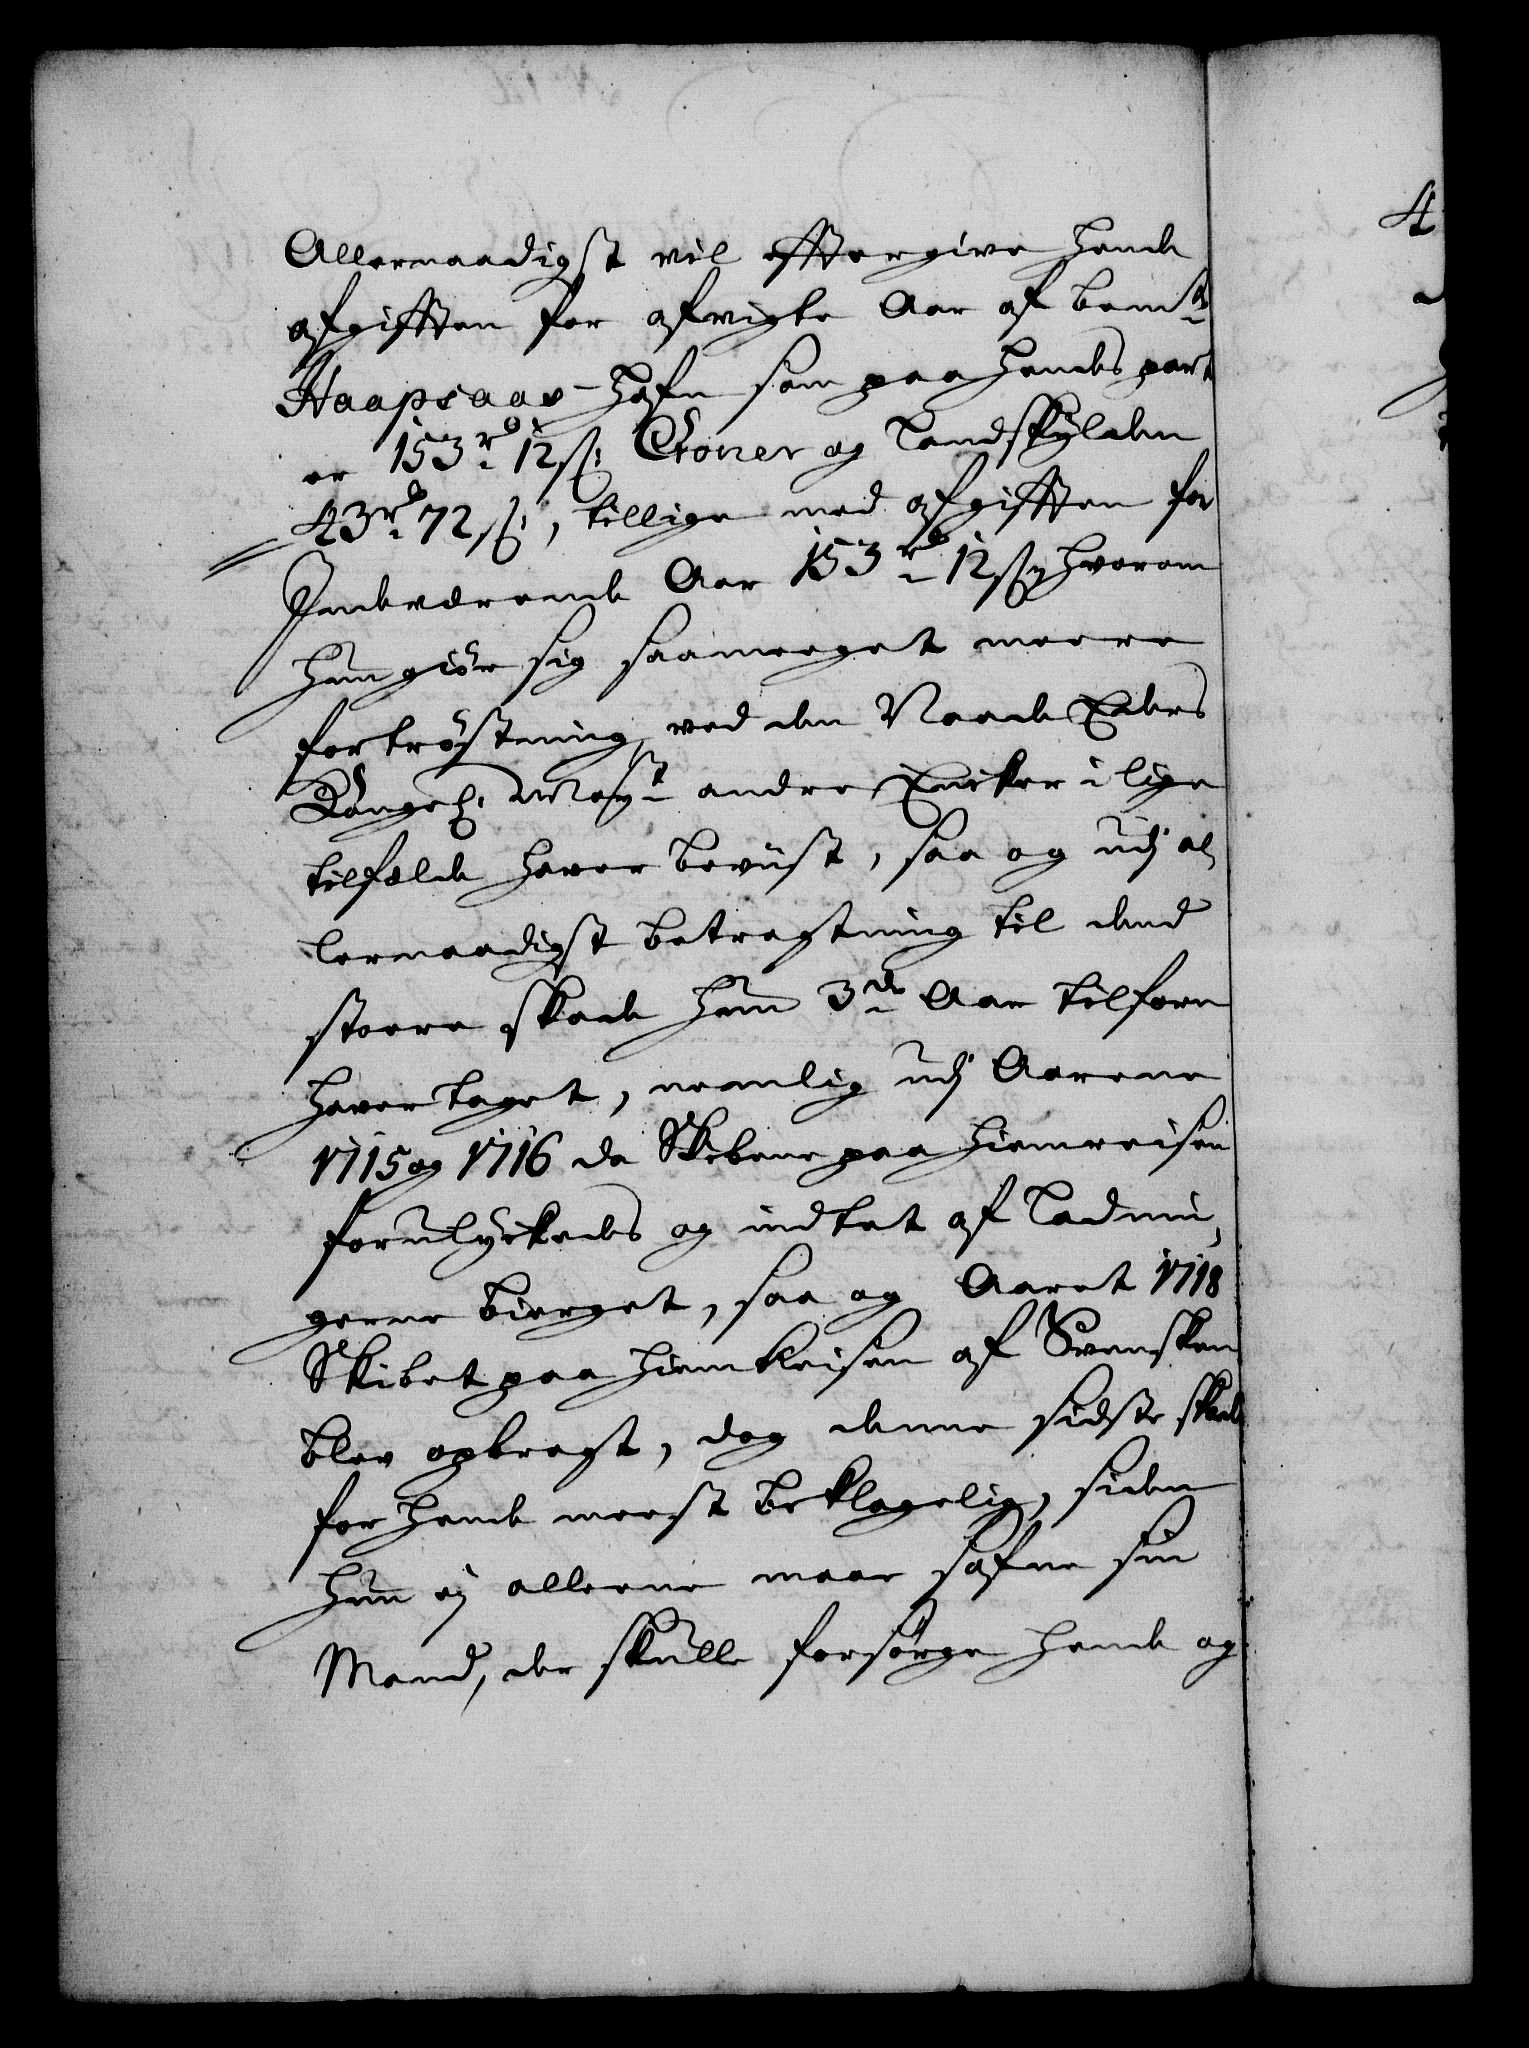 Allernaadigst vil efftergive hende
afgifften for afvigte Aar af bemte
Haapsaas-Hafn som paa hendes part
er 153rd 12ß: Croner og Landskÿlden
43rd 72ß:, tillige med afgifften for
Indeværende Aar 153rd 12ß, hvorom
hun giör sig saameeget meere
fortröstning, ved den Naade Eders
Kongel: Mayst andre Encker i lige
tilfælde haver beviist, saa og udj al
lernaadigst betragtning til dend
stoere skade hun 3de Aar tilforn
haver taget, nemlig udj Aarene
1715 og 1716 da Skibene paa hiemreisen
forulÿckedes og intet af Ladnin,
gerne bierget, saa og Aaret 1718
Skibet paa hiemReisen af Svensken
blev opbragt, dog denne sidste skade
for hende meest beklagelig, siden
hun ej allerne maae safne sin
Mand, der skulle forsörge hende og
4